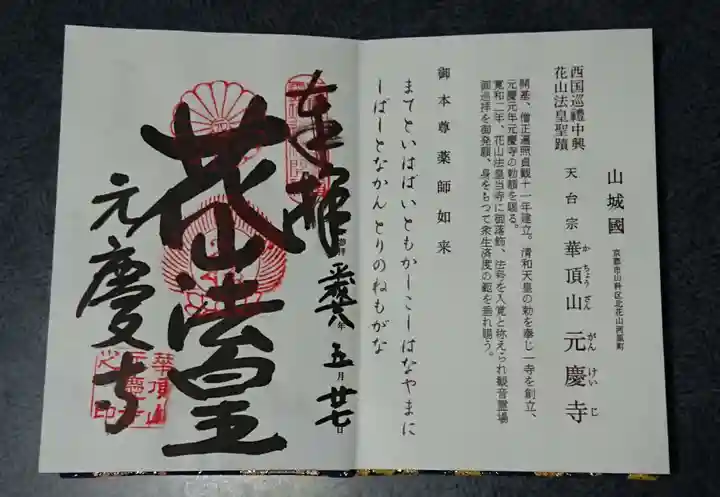 西国巡禮中興
花山法皇聖蹟
山城國
京都市山科区北花山河原町
天台宗 華頂山 元慶寺
かちょうざん がんけいじ
開基、僧正遍照貞観十一年建立。清和天皇の勅を奉じ一寺を創立、
元慶元年元慶寺の勅額を賜る。
寛和二年、花山法皇当寺に御落飾、法号を入覚と称えられ観音霊場
御巡拝を御発願、身をもつて衆生済度の範を垂れ賜う。
御本尊薬師如来
まてといはばいともかーこーはなやまに
しばーとなかん とりのねもがな
奉拝
参拝 平成廿八年 五月 廿七日
花山法皇
元慶寺
華頂山
元慶寺
之印